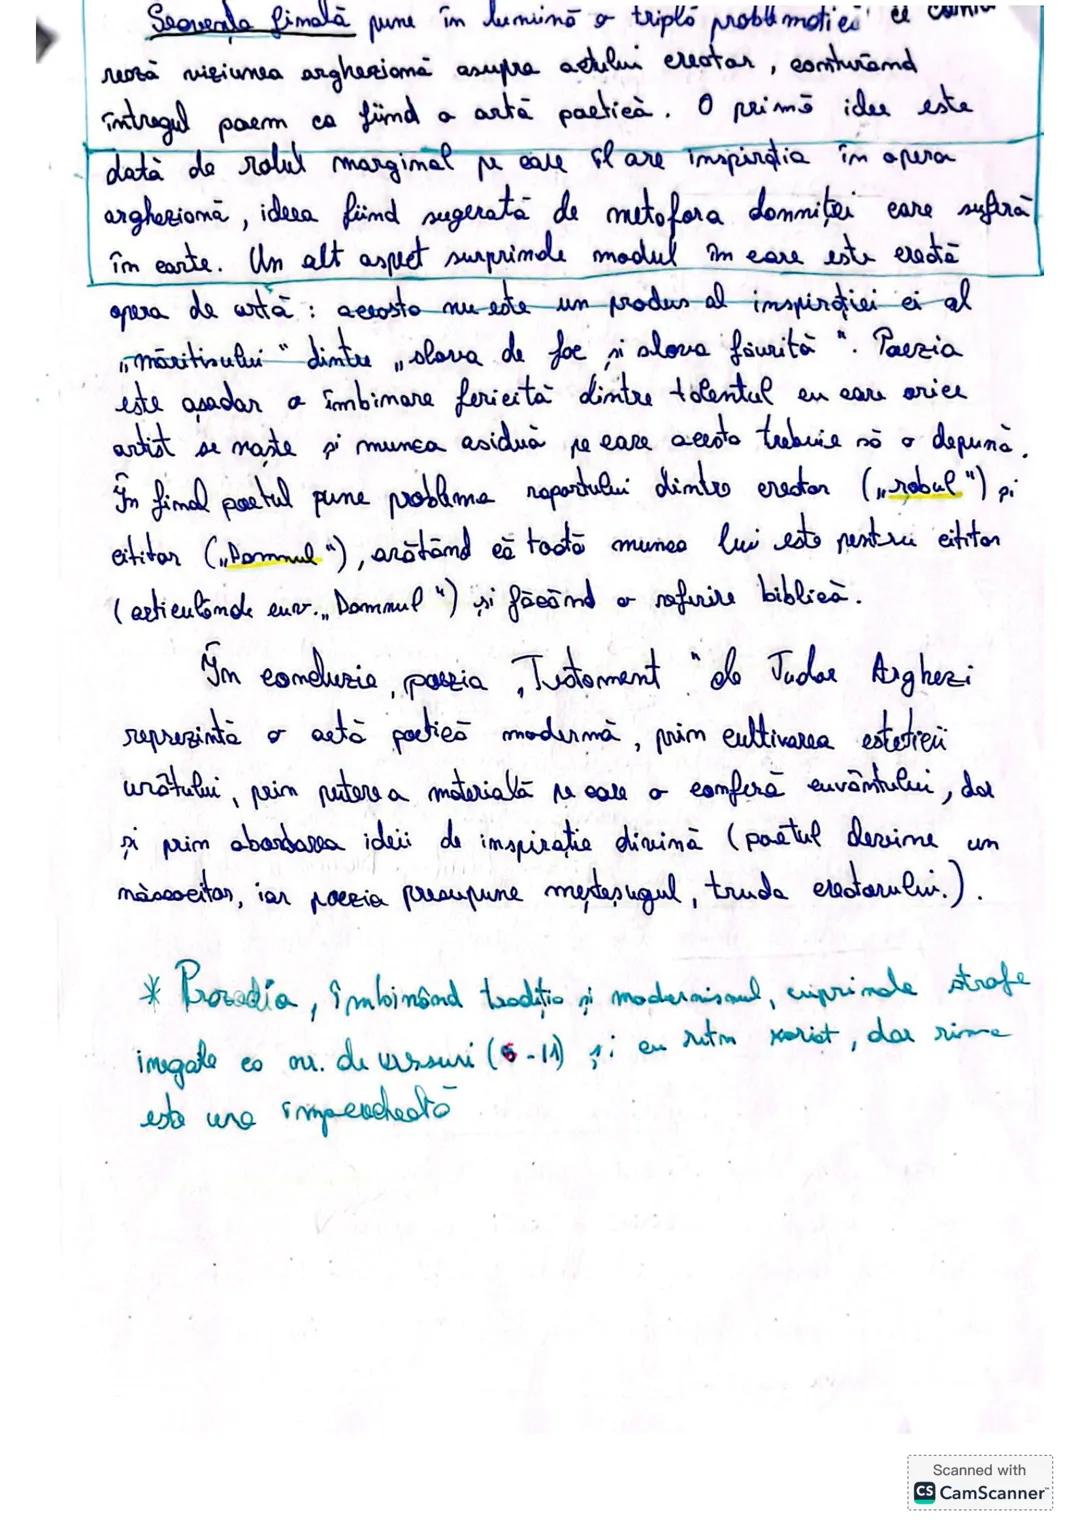 Secvența finală pune în lumină o triplă problematică ce
rează viziunea argheziană asupra actului creator, conturând
întregul poem ca fiind o artă poetică. O primă idee este
dată de rolul marginal pe care îl are inspirația în opera
argheziană, ideea fiind sugerată de metafora domniței care suferă
în carte. Un alt aspect surprinde modul în care este creată
opera de artă : aceasta nu este un produs al inspirației ci al
„măritișului" dintre „slova de foc și slova făurită". Poezia
este așadar o îmbinare fericită dintre talentul cu care orice
artist se naște și munca asiduă pe care acesta trebuie să o depună.
În final poetul pune problema raportului dintre creator („robul") și
cititor („Domnul"), arătând că toată munca lui este pentru cititor
(articulânde cuv. „Domnul") și făcând o referire biblică.
În concluzie, poezia „Testament" de Tudor Arghezi
reprezintă o artă poetică modernă, prin cultivarea esteticii
urâtului, prin puterea materială pe care o conferă cuvântului, dar
și prin abordarea ideii de inspirație divină (poetul devine un
născocitor, iar poezia presupune meșteșugul, truda creatorului.).
* Prozodia, îmbinând tradiție și modernismul, cuprinde strofe
inegale ca nr. de versuri (5-11) și cu ritm variat, dar rima
este una împerecheată
Scanned with
CS CamScanner